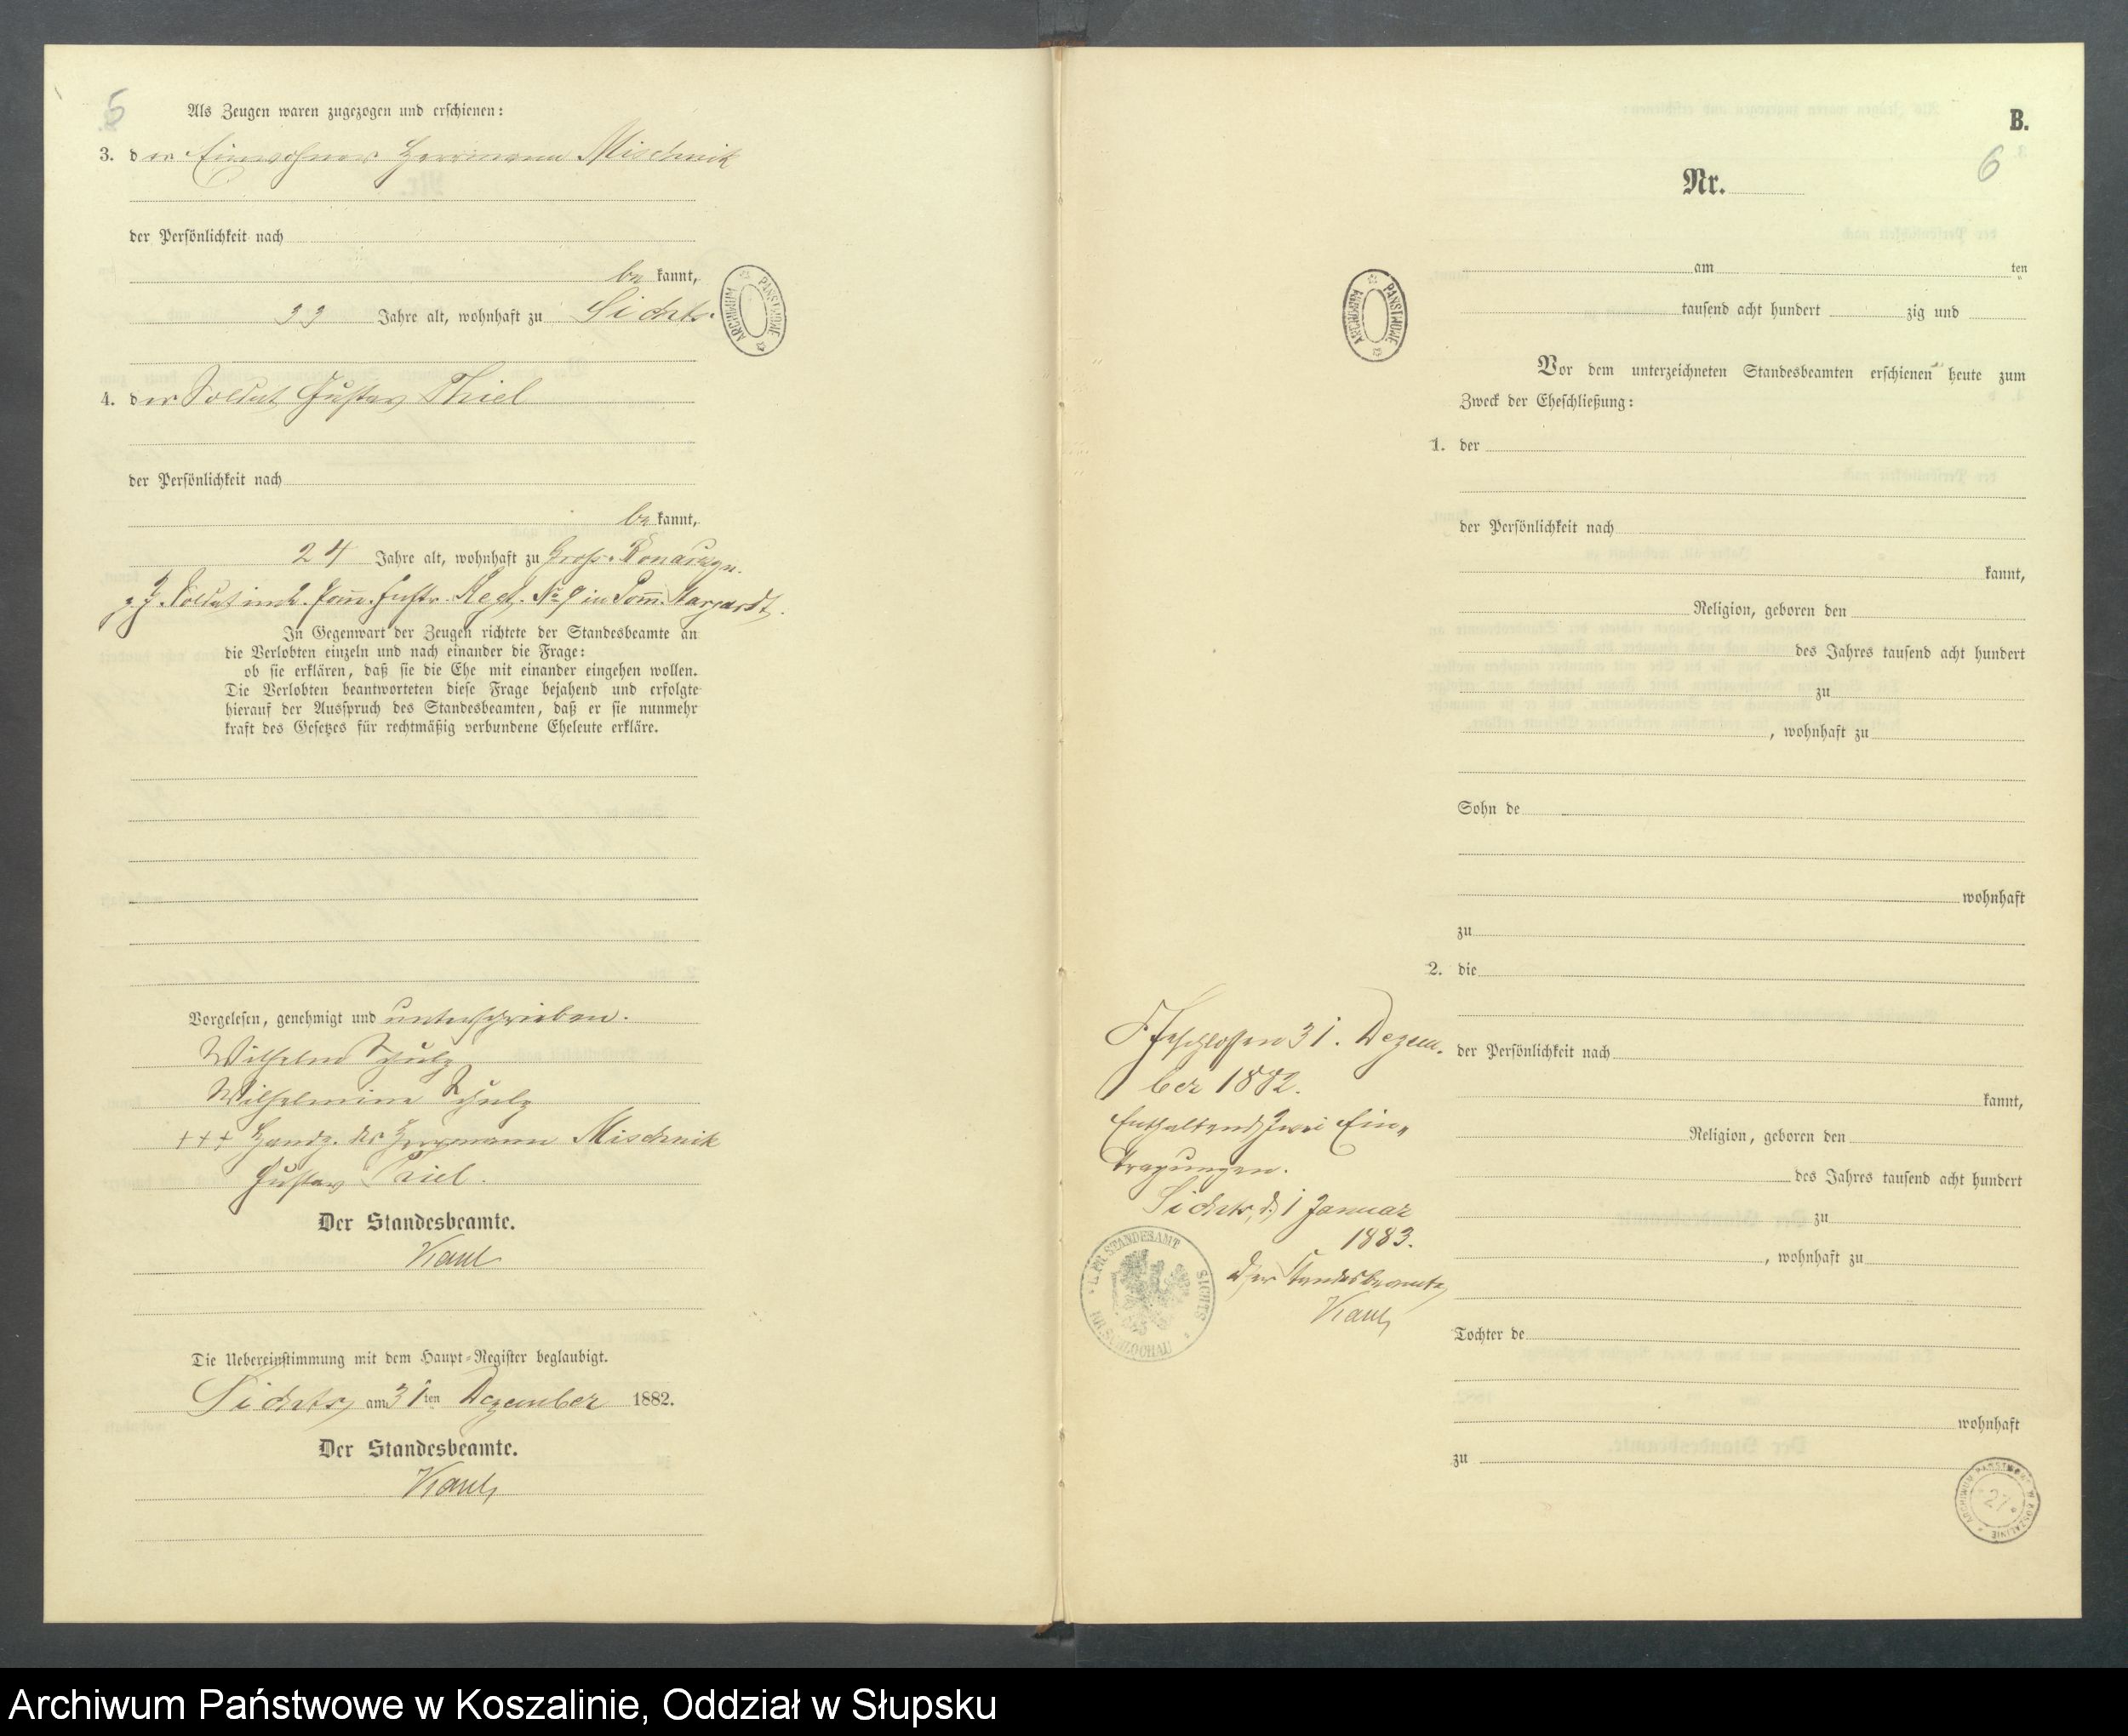 5
Als Zeugen waren zugezogen und erschienen:
3. der Einwohner Herrmann Mischnik
der Persönlichkeit nach
bekannt,
33 Jahre alt, wohnhaft zu Sichts
ARCHIWUM PAŃSTWOWE
4. der Soldat Gustav Thiel
der Persönlichkeit nach
bekannt,
24 Jahre alt, wohnhaft zu Gross-Konarczyn.
z. Z. Soldat im Regt. No 9 in Pom. Stargardt.
In Gegenwart der Zeugen richtete der Standesbeamte an
die Verlobten einzeln und nach einander die Frage:
ob sie erklären, daß sie die Ehe mit einander eingehen wollen.
Die Verlobten beantworteten diese Frage bejahend und erfolgte
hierauf der Ausspruch des Standesbeamten, daß er sie nunmehr
kraft des Gesetzes für rechtmäßig verbundene Eheleute erkläre.
Vorgelesen, genehmigt und unterschrieben.
Wilhelm Schulz
Wilhelmine Schulz
+++ Handz. des Herrmann Mischnik
Gustav Thiel.
Der Standesbeamte.
Die Uebereinstimmung mit dem Haupt-Register beglaubigt.
Sichts, am 31ten Dezember 1882.
Der Standesbeamte.
B.
6
Nr.
am ten
tausend acht hundert zig und
ARCHIWUM PAŃSTWOWE
Vor dem unterzeichneten Standesbeamten erschienen heute zum
Zweck der Eheschließung:
1. der
der Persönlichkeit nach
kannt,
Religion, geboren den
des Jahres tausend acht hundert
zu
, wohnhaft zu
Sohn de
wohnhaft
zu
2. die
der Persönlichkeit nach
kannt,
Religion, geboren den
des Jahres tausend acht hundert
zu
, wohnhaft zu
Tochter de
wohnhaft
zu
geschlossen 31. Dezem-
ber 1882.
Enthaltend zwei Ein-
tragungen.
Sichts, d. 1 Januar
1883.
Der Standesbeamte
K. PR. STANDESAMT SICHTS
KR. SCHLOCHAU
ARCHIWUM PAŃSTWOWE W KOSZALINIE
27
Archiwum Państwowe w Koszalinie, Oddział w Słupsku